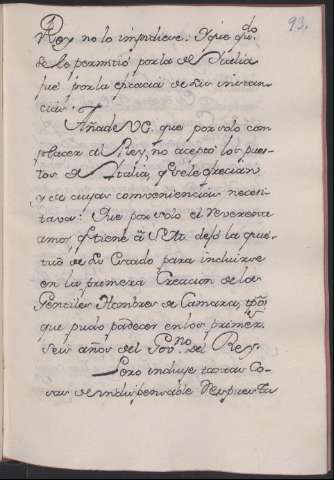 93.
Rey no lo impidiese: Y que qdo.
se le permitió por la de Sicilia
fué por la eficacia de sus instan-
cias.
Añade VE. que por solo com-
placer al Rey, no aceptó los pues-
tos de Italia, qe. se le ofrecian
y de cuyas conveniencias necesi-
tava: Que por solo el reverente
amor, qe. tiene â S.M. dejó la quie-
tud de su Estado para incluirse
en la primera Creacion de los
Gentiles Hombres de Camara,
que pudo padecer en los primer.
seis años del Govno. del Rey.
Pero incluye tantas Co-
sas de indispensable Respuesta